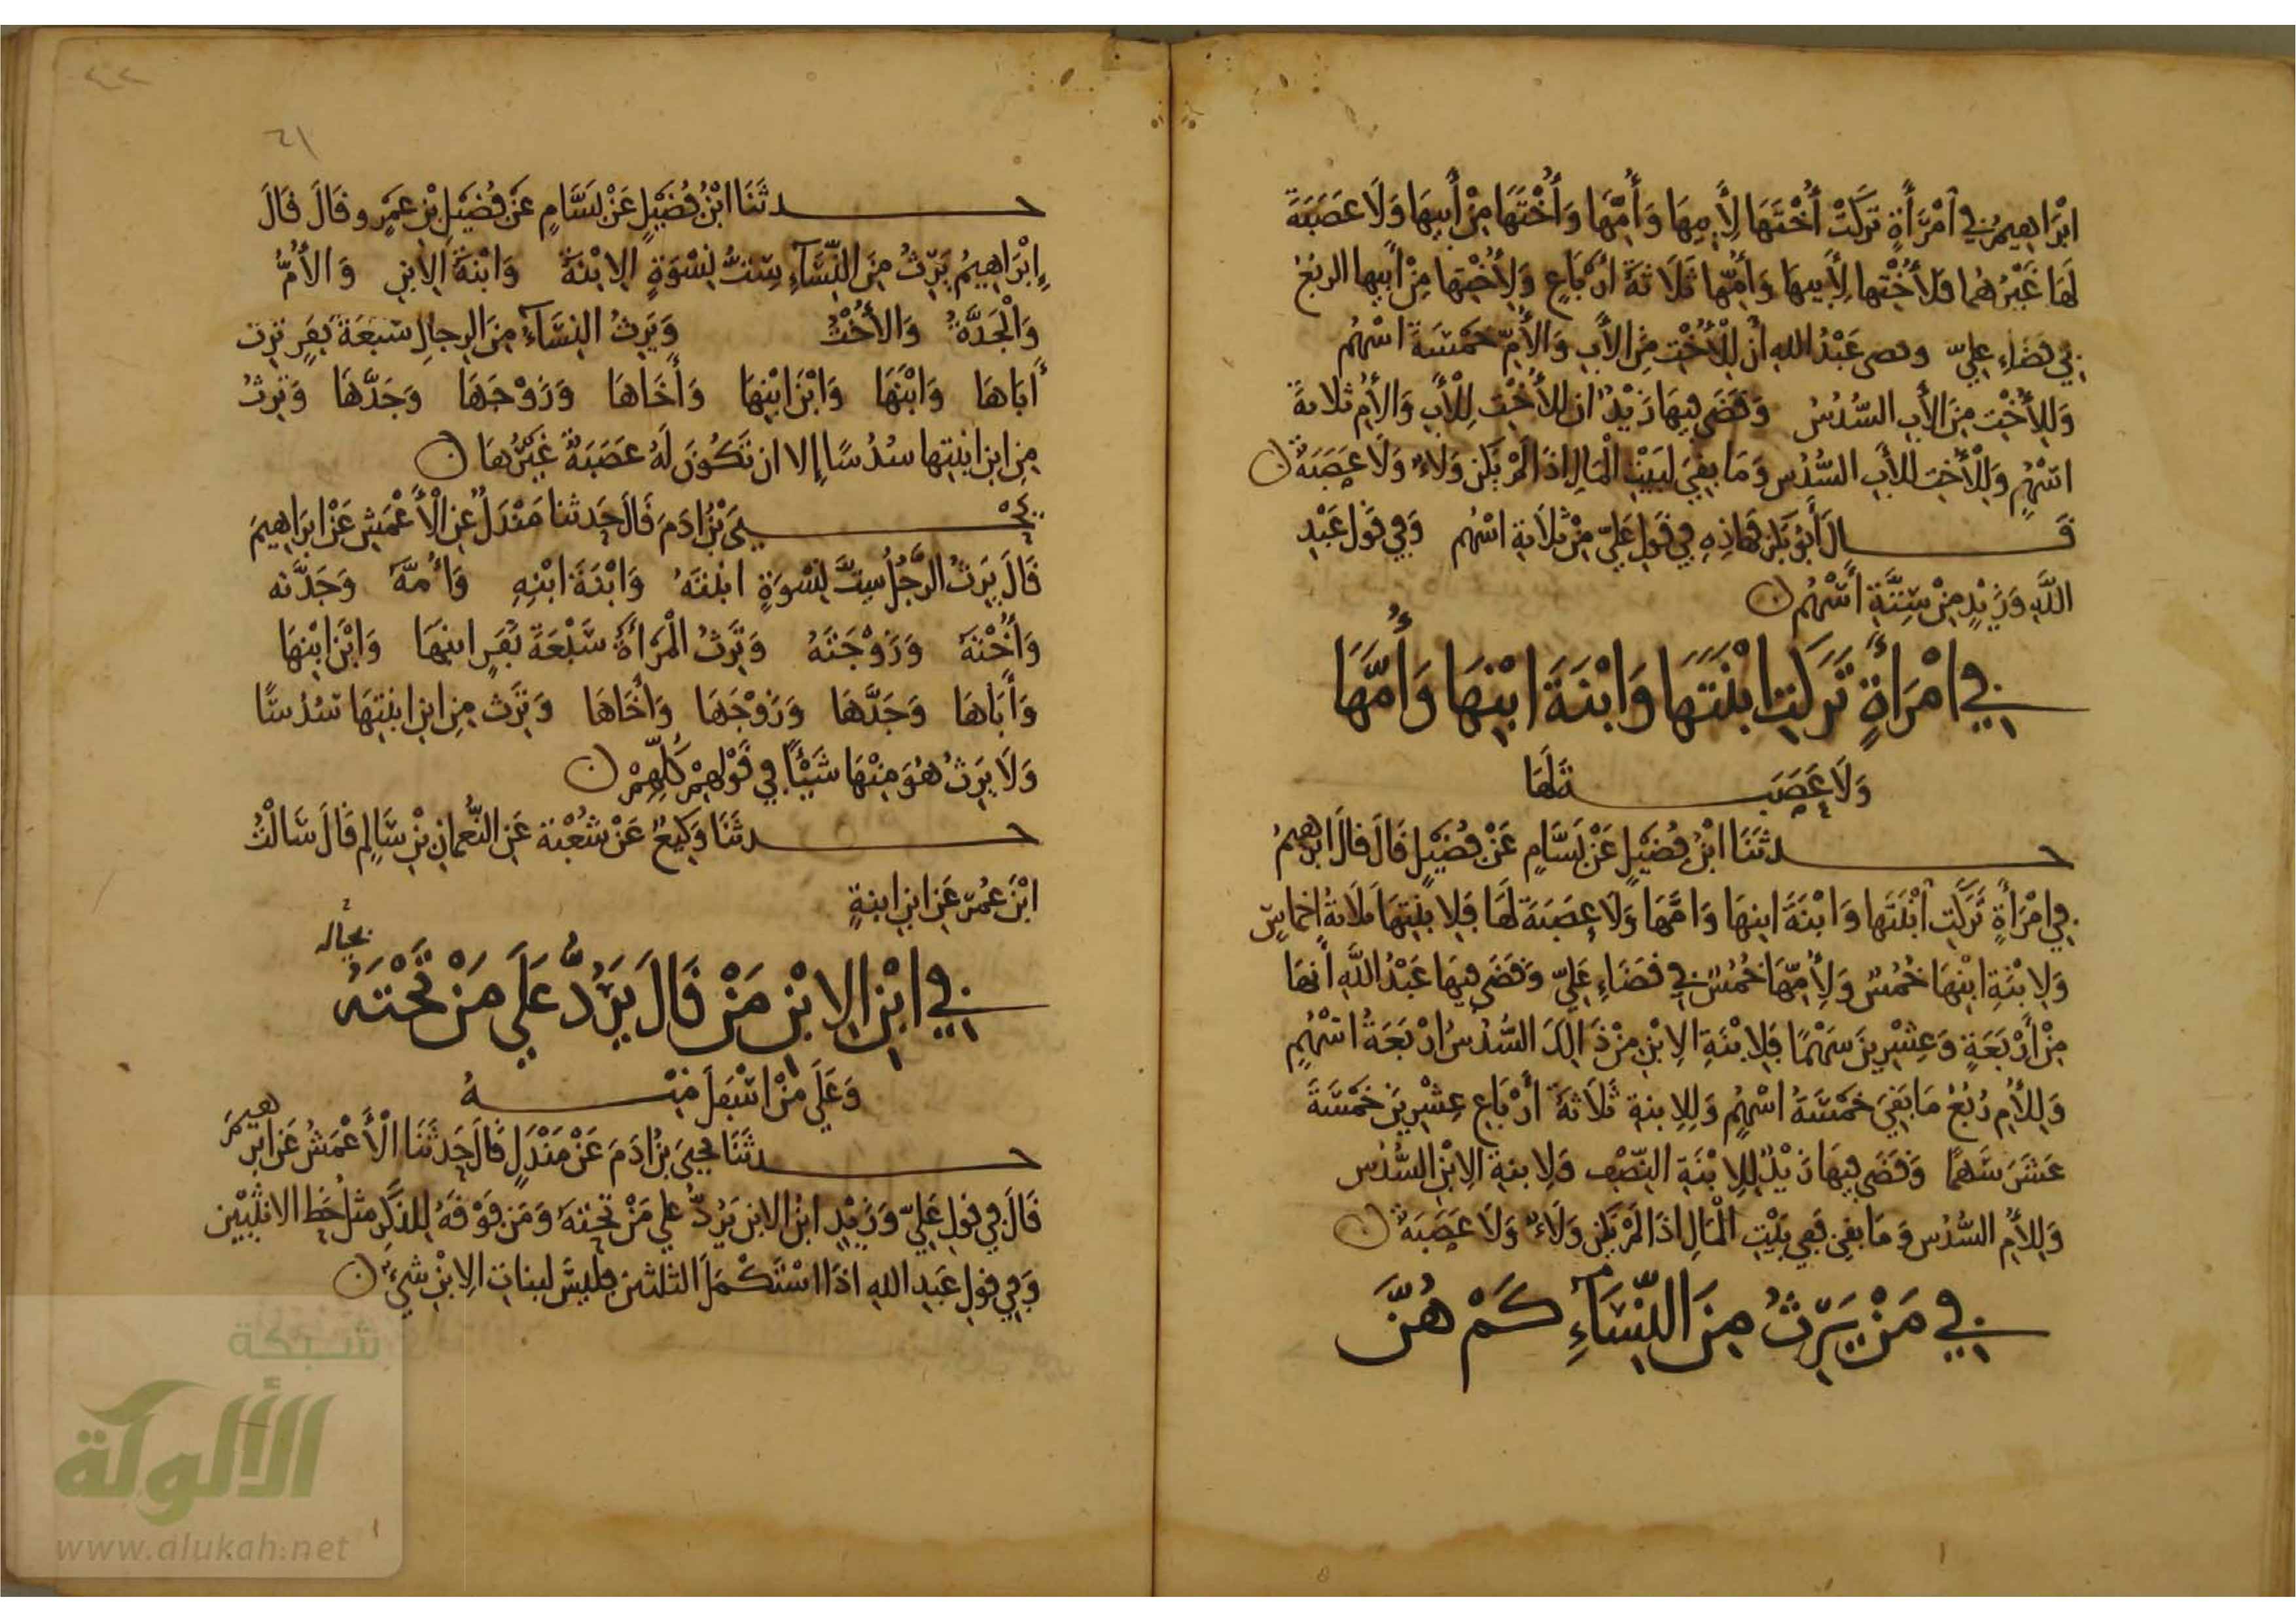 ابْرَاهِيمُ فِي امْرَأَةٍ تَرَكَتْ أُخْتَهَا لِأَبِيهَا وَأُمِّهَا وَأُخْتَهَا مِنْ أَبِيهَا وَلَا عَصَبَةَ
لَهَا غَيْرُهُمَا فَلِأُخْتِهَا لِأَبِيهَا وَأُمِّهَا ثَلَاثَةُ أَرْبَاعٍ وَلِأُخْتِهَا مِنْ أَبِيهَا الربُعُ
فِي قَضَاءِ عَلِيّ وقضى عَبْدُ الله أن لِلْأُخْتِ مِنَ الأَبِ وَالأُمِّ خَمْسَةَ اسْهُم
وَلِلأُخْتِ مِنَ الأَبِ السُّدُسُ وَقَضَى فِيهَا زَيْدٌ ان للأُخْتِ لِلْأَبِ وَالأُمِ ثلاثةَ
اسْهُمٍ وَلِلْأُخْتِ للأَبِ السُّدُس وَمَا بَقِيَ لبَيْتِ الْمَالِ اذَا لَمْ يَكن وَلَاءٌ وَلَا عَصَبَةٌ ن
قَــــــالَ أَبُو بَكْر فهاذِهِ فِي قَولِ عَلِيّ مِنْ ثَلَاثةِ اسْهُم وَفِي قَوْل عَبْدِ
اللَّهِ وَزَيْدٍ مِنْ سِتَّةِ أَسْهُمٍ ن
فِي امْرَأَةٍ تَرَكَتِ ابْنَتَهَا وَابْنَةَ ابْنِهَا وَأُمَّهَا
وَلَا عَصَبَــــــةَ لَهَا
حــــــدثَنَا ابْنُ فُضَيْلٍ عَنْ بَسَّامٍ عَنْ فُضَيْلٍ قَالَ قَالَ ابْرَاهِيمُ
فِي امْرَأَةٍ تَرَكَتِ ابْنَتَهَا وَابْنَةَ ابنِهَا وَامَّهَا وَلَا عِصَبَةَ لَهَا فَلِابْنَتِهَا ثلَاثةُ اخماسٍ
وَلِابْنَةِ ابْنِهَا خُمُسٌ وَلِأُمِّهَا خُمُسٌ فِي قَضَاءِ عَلِيّ وَقَضَى فِيهَا عَبْدُ اللَّهِ أنهَا
مِنْ أَرْبَعَةٍ وَعِشْرِينَ سَهْمًا فَلِابْنَةِ الِابْنِ مِنْ ذَالِكَ السُّدُسُ ارْبَعَةُ اسْهُمٍ
وَلِلأُم رُبُعُ مَا بَقِيَ خَمْسَةُ اسْهُمٍ وَلِلِابنةِ ثَلَاثَةُ أَرْبَاعِ عِشْرِينَ خَمْسَةَ
عَشَرَ سَهمًا وَقَضَى فِيهَا زَيْدٌ لِلِابْنَةِ النِّصْف وَلِابنةِ الِابْنِ السُّدُس
وَلِلأُم السُّدُس وَمَا بقي فَفِي بَيْتِ الْمَالِ اذَا لَمْ يَكن وَلَاءٌ وَلَا عَصَبَةٌ ن
فِي مَنْ يَرِثُ مِنَ النِّسَاءِ كَمْ هُنَّ
٦١
حــــــدثَنَا ابْنُ فُضَيْلٍ عَنْ بَسَّامٍ عَنْ فُضَيْلِ بْنِ عَمْرٍو قَالَ قَالَ
إِبْرَاهِيمُ يَرِثُ مِنَ النِّسَاءِ سِتُّ نِسْوَةٍ الِابْنَةُ وَابْنَةُ الِابنِ وَالأُمُّ
وَالْجَدَّةُ وَالأُخْتُ وَيَرِثُ النِسَاءَ مِنَ الرجالِ سَبعَةُ نَفَرٍ تَرِث
أَبَاهَا وَابْنَهَا وَابْنَ ابْنِهَا وَأَخَاهَا وَزَوْجَهَا وَجَدَّهَا وَتَرِثُ
مِنِ ابنِ ابنتِها سُدُسًا إلا ان تَكُونَ لَهُ عَصَبَةٌ غَيْرُهَا ن
يحيَى بْنُ ادَمَ قَالَ حَدثنا مَنْدَلٌ عنِ الْأَعْمَشِ عَنْ ابرَاهِيمَ
قَالَ يَرِثُ الرَّجُلُ سِتَّ نِسْوَةٍ ابْنتَهُ وَابْنَةَ ابْنِهِ وَأُمَّهُ وَجَدَّته
وَأُخْتَهُ وَزَوْجَتَهُ وَتَرِثُ الْمَرْأَةُ سَبْعَةَ نَفَرٍ ابنَهَا وَابْنَ ابْنِهَا
وَأَبَاهَا وَجَدَّهَا وَزَوْجَهَا وَأَخَاهَا وَتَرِث مِنِ ابنِ ابنَتِهَا سُدُسًا
وَلَا يَرِثُ هُوَ مِنْهَا شَيْئًا فِي قَوْلِهِمْ كُلِّهِمْ ن
حــــــدثَنَا وَكِيعٌ عَنْ شُعْبَة عَنِ النُّعْمانِ بْنِ سَالِم قَالَ سَالْتُ
ابْنَ عُمَرَ عَنِ ابنِ ابنةٍ
فِي ابْنِ الِابْنِ مَنْ قَالَ يَرُدُّ عَلَى مَنْ تَحْتَهُ بحاله
وَعَلَى مَنْ اسْفَلَ مِنْــــــهُ
حــــــدثَنَا يحيى بْنُ ادَمَ عَنْ مَنْدَلٍ قَالَ حَدثَنَا الْأَعْمَشُ عَنْ ابراهيمَ
قَالَ فِي قولِ عَلِيّ وَزَيْدٍ ابنُ الابن يَرُدُّ علي مَنْ تحتهُ وَمَن فَوْقَهُ لِلذكَرِ مثلُ حَظ الانثيَيْن
وَفِي قولِ عَبدِ الله اذَا اسْتَكْمَلَ الثلثين فليسَ لبناتِ الِابْنِ شيءٌ ن
شبكة
الألوكة
www.alukah.net